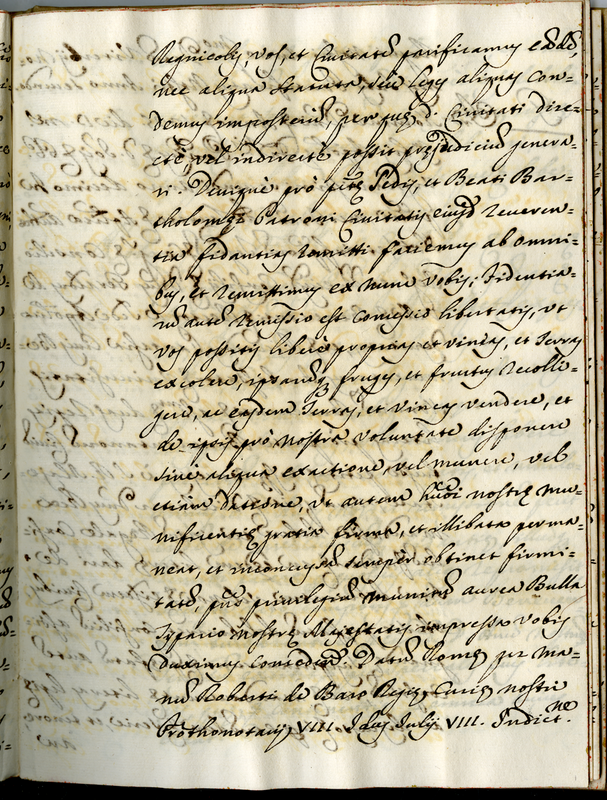 Regnicolis, vos, et Civitatẽ parificamus eisdẽ,
nec aliqua statuta, seu leges aliquas con=
demus imposterũ, per quę d. Civitati dire=
ctè, vel indirectè possit pręjudiciũ genera=
ri. Deniquè prò Sedis, et Beati Bar=
tholomęi Patroni Civitatis ejusd̃ reveren=
tia fidantias remitti faciemus ab omni=
bus, et remittimus ex nunc vobis; fidentia=
rũ autẽ remissio est concessio libertatis, vt
vos possitis liberè proprias et vineas, et Terras
excolere, ipsarũq; fruges, et fructus recolli=
gere, ac easdem Terras, et vineas vendere, et
de ipsis prò vostra voluntate disponere
sine aliqua exactione, vel munere, vel
etiam datione, vt autem hũoi nostrę mu=
nificentię gratia firma, et illibata perma=
neat, et inconcussã sempèr obtineat firmi=
tatẽ, pñs privilegiũ munitũ aurea Bulla
Typario nostrę Majestatis impressa vobis
duximus concedẽdũ. Datũ Romę per ma=
nus Roberti de Baro Regię Curię nostri
Prothonotarij VIII. Idus Julij VIII. Indict.ne